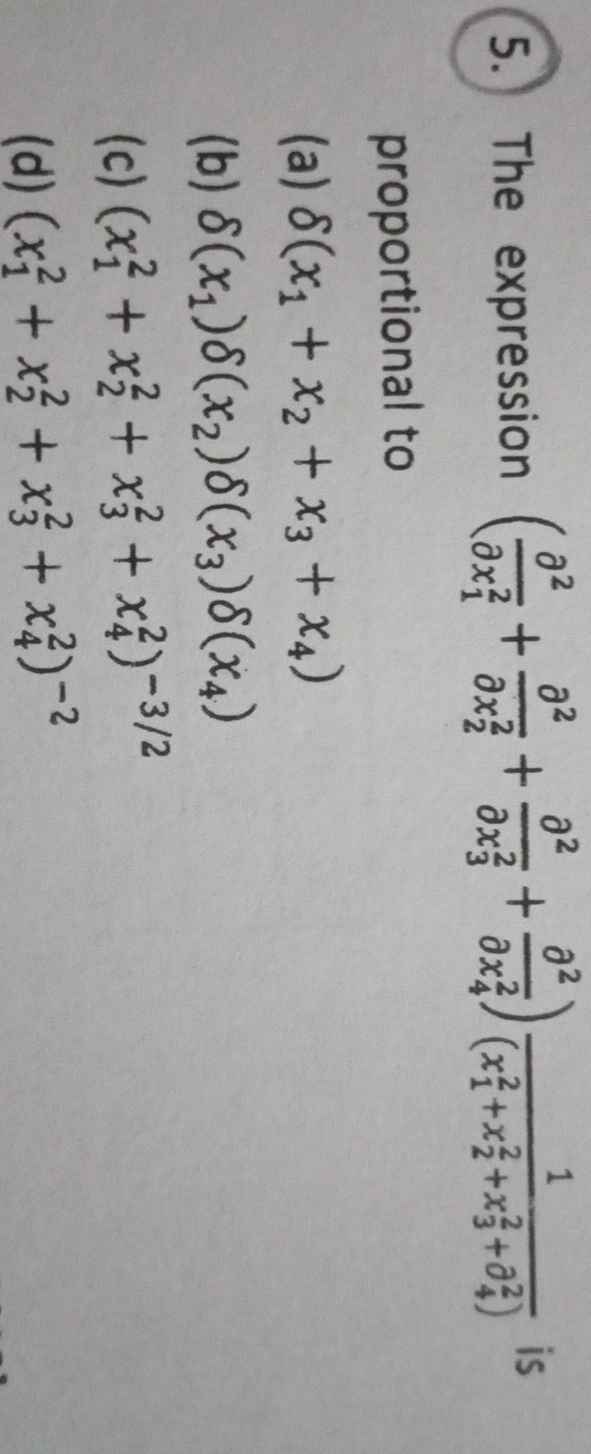 5. The expression (∂²/∂x₁² + ∂²/∂x₂² + ∂²/∂x₃² + ∂²/∂x₄²) 1/(x₁²+x₂²+x₃²+∂₄²) is
proportional to
(a) δ(x₁ + x₂ + x₃ + x₄)
(b) δ(x₁)δ(x₂)δ(x₃)δ(x₄)
(c) (x₁² + x₂² + x₃² + x₄²)⁻³/²
(d) (x₁² + x₂² + x₃² + x₄²)⁻²